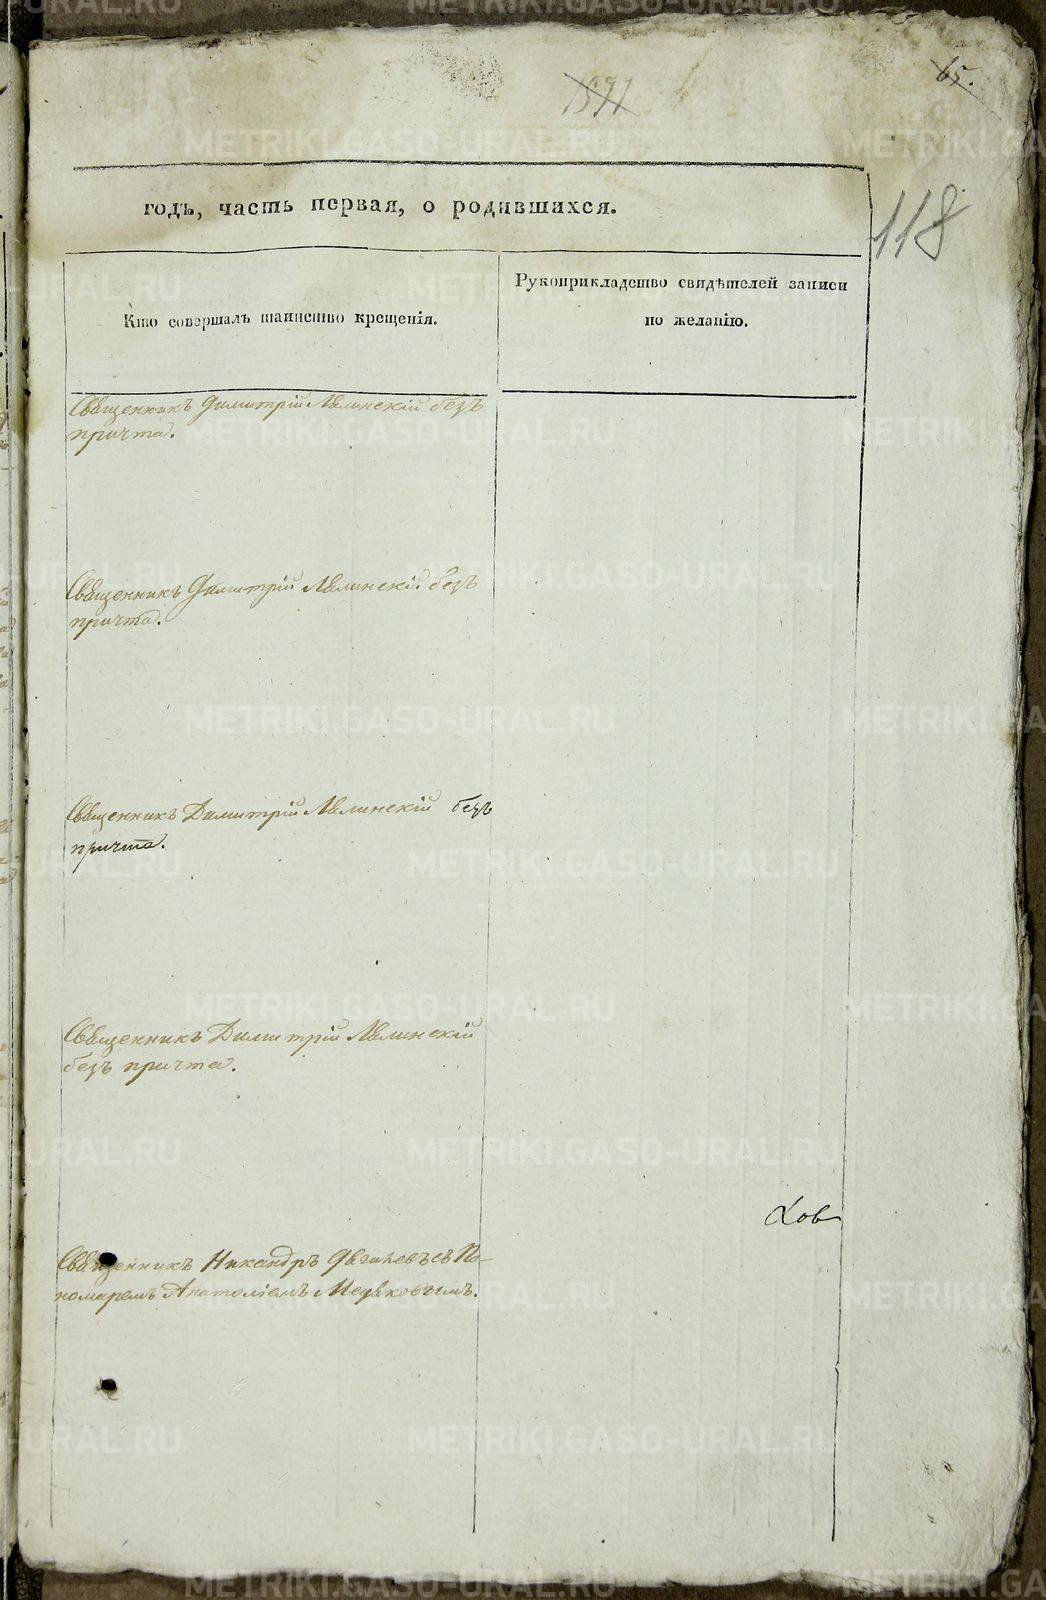 65.
1591
118
годъ, часть первая, о родившихся.
Кто совершалъ таинство крещенія.
Рукоприкладство свидѣтелей записи
по желанію.
Священникъ Димитрій Ляпинскій безъ
причта.
Священникъ Димитрій Ляпинскій безъ
причта.
Священникъ Димитрій Ляпинскій безъ
причта.
Священникъ Димитрій Ляпинскій
безъ причта.
ков
Священникъ Никандръ съ По-
номаремъ Анатоліемъ
METRIKI.GASO-URAL.RU